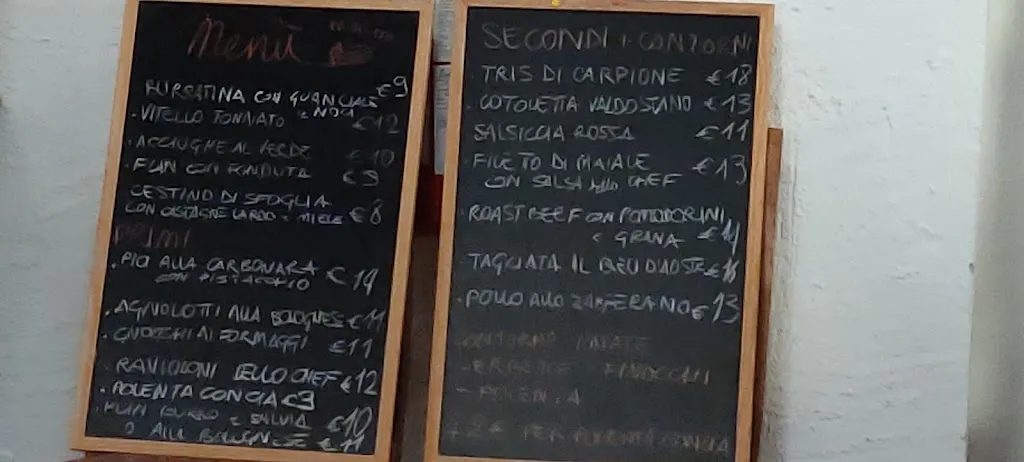 Menù
BURRATINA CON GUANCIALE €9
E NOCI
. VITELLO TONNATO €12
. ACCIUGHE AL VERDE €10
. FLAN CON FONDUTA €9
CESTINO DI SFOGLIA
CON CASTAGNE LARDO E MIELE €8
PRIMI
. PICI ALLA CARBONARA
CON PISTACCHIO
. AGNOLOTTI ALLA BOLOGNES €11
. GNOCCHI AI FORMAGGI €11
. RAVIOLONI DELLO CHEF €12
. POLENTA CONCIA €9
BURRO E SALVIA €10
O ALLA BOLOGNESE €11
SECONDI + CONTORNI
. TRIS DI CARPIONE €18
. COTOLETTA VALDOSTANO €13
SALSICCIA ROSSA €11
. FILETTO DI MAIALE €13
CON SALSA DELLO CHEF
. ROAST BEEF CON POMODORINI
E GRANA
. TAGLIATA
. POLLO ALLO ZAFFERANO €13
CONTORNO
- ERBETTE - FINOCCHI
- POLENTA
+2€ PER POLENTA CONCIA